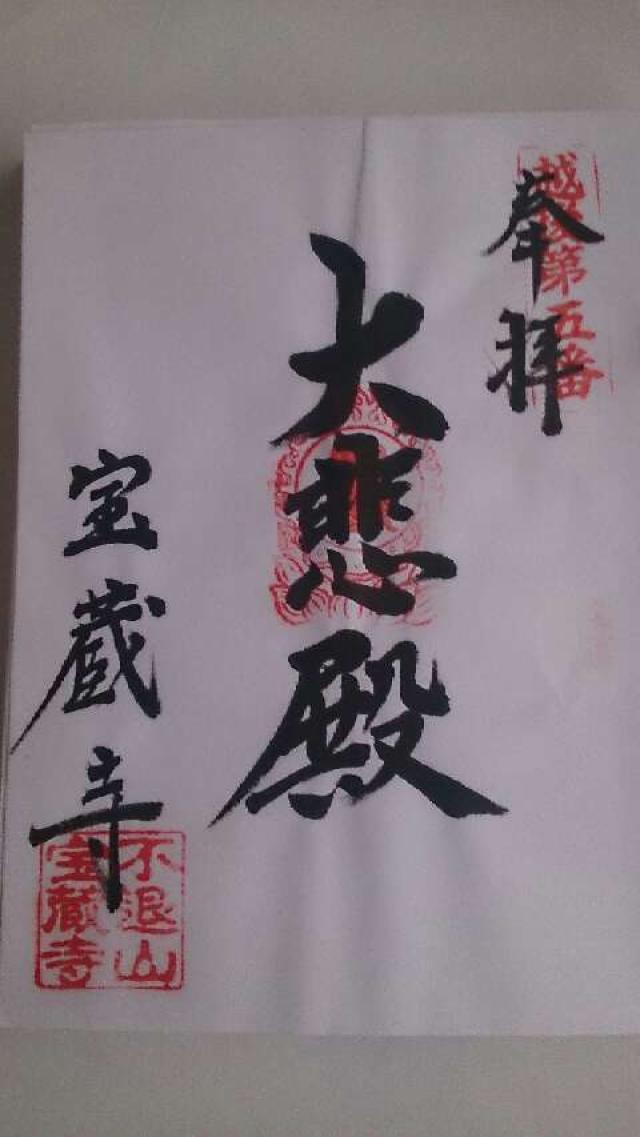 奉拝
越後第五番
大悲殿
宝蔵寺
不退山
宝蔵寺